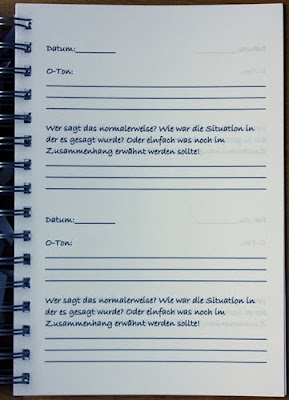 Datum:________
O-Ton:
Wer sagt das normalerweise? Wie war die Situation in
der es gesagt wurde? Oder einfach was noch im
Zusammenhang erwähnt werden sollte!
Datum:________
O-Ton:
Wer sagt das normalerweise? Wie war die Situation in
der es gesagt wurde? Oder einfach was noch im
Zusammenhang erwähnt werden sollte!